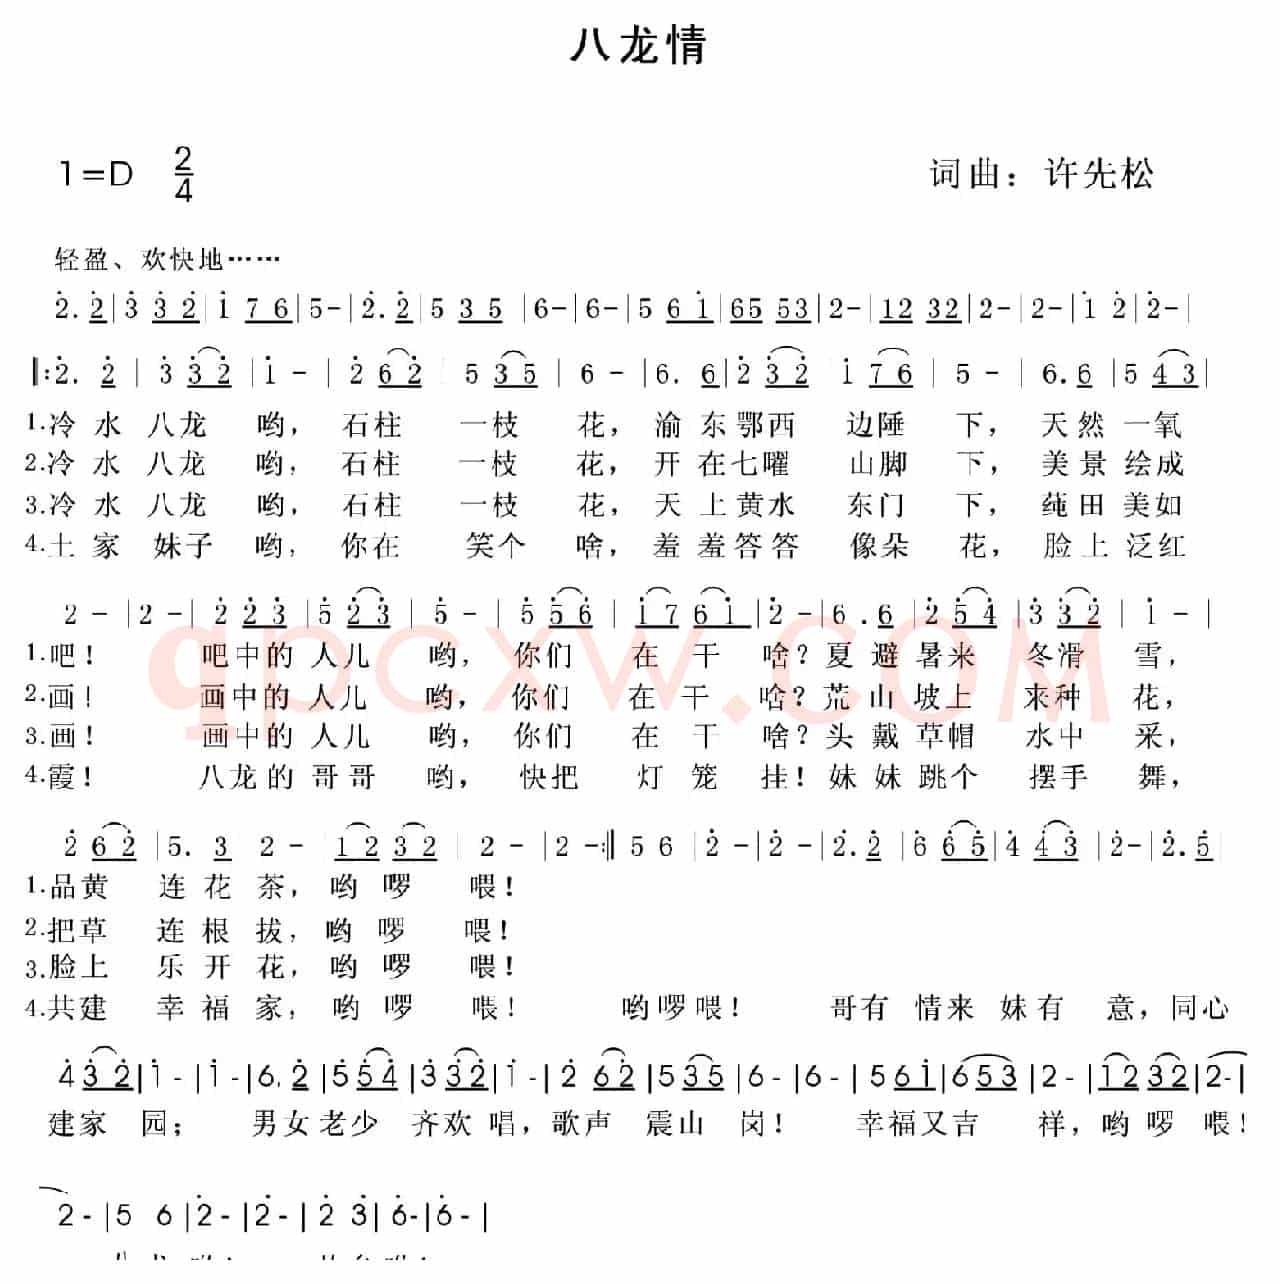 八龙情
1=D 2/4
词曲：许先松
轻盈、欢快地……
2. 2|3 3 2|1 7 6|5-|2. 2|5 3 5|6-|6-|5 6 1|65 53|2-|12 32|2-|2-|1 2|2-|
‖:2. 2|3 3 2|1 -|2 6 2 5 3 5|6 -|6. 6|2 3 2 1 7 6|5 -|6. 6|5 4 3|
1.冷水八龙 哟， 石柱 一枝 花， 渝东鄂西 边陲 下， 天然一氧
2.冷水八龙 哟， 石柱 一枝 花， 开在七曜 山脚 下， 美景绘成
3.冷水八龙 哟， 石柱 一枝 花， 天上黄水 东门 下， 莼田美如
4.土家妹子 哟， 你在 笑个 啥， 羞羞答答 像朵 花， 脸上泛红
2 -|2 -|2 2 3|5 2 3|5 -|5 5 6|1 7 6 1|2 -|6 . 6|2 5 4|3 3 2|1 -|
1.吧！ 吧中的人儿 哟， 你们 在干 啥？夏避暑来 冬滑 雪，
2.画！ 画中的人儿 哟， 你们 在干 啥？荒山坡上 来种 花，
3.画！ 画中的人儿 哟， 你们 在干 啥？头戴草帽 水中 采，
4.霞！ 八龙的哥哥 哟， 快把 灯笼 挂！妹妹跳个 摆手 舞，
2 6 2|5. 3 2 - 1 2 3 2 2 -|2 -:‖ 5 6|2 -|2 -|2. 2|6 6 5|4 4 3|2-|2. 5|
1.品黄 连花茶，哟啰 喂！
2.把草 连根拔，哟啰 喂！
3.脸上 乐开花，哟啰 喂！
4.共建 幸福家，哟啰 喂！ 哟啰喂！ 哥有 情来 妹有 意，同心
4 3 2|1 -|1 -|6. 2|5 5 4|3 3 2|1 -|2 6 2|5 3 5|6 -|6 -|5 6 1|6 5 3|2 -|1 2 3 2|2-|
建家 园； 男女老少 齐欢 唱，歌声 震山 岗！ 幸福又吉 祥，哟啰 喂！
2 -|5 6|2 -|2 -|2 3|6-|6-|
qpcxw.COM